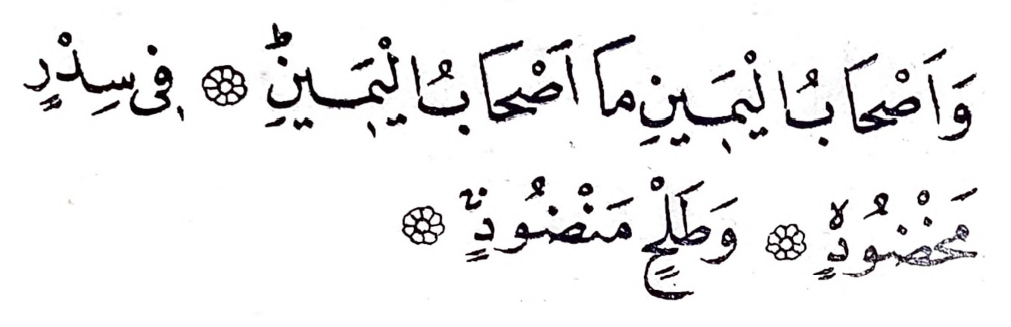 وَاَصْحَابُ الْيَمِينِ مَا اَصْحَابُ الْيَمِينِۜ ۞ فِى سِدْرٍ
مَخْضُودٍۙ ۞ وَطَلْحٍ مَنْضُودٍۙ ۞